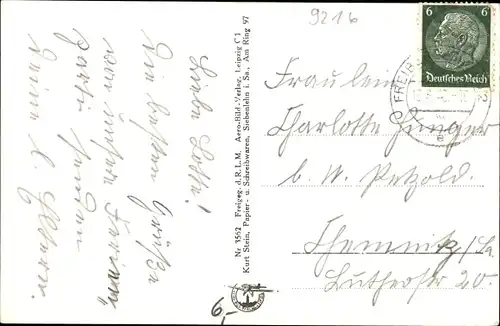 9216
Liebe Lotte!
Die besten Grüße
von unserer Ferien
partie senden
Deine l. Eltern.
Nr 3552 Freigeg. d. R.L.M. Aero-Bild-Verlag, Leipzig C 1
Kurt Stein, Papier- u. Schreibwaren, Siebenlehn i. Sa., Am Ring 97
6,-
6 6
Deutsches Reich
FREIB
Fräulein
Charlotte Junger
b. W. Petzold.
Chemnitz/Sa.
Lutherstr 20.